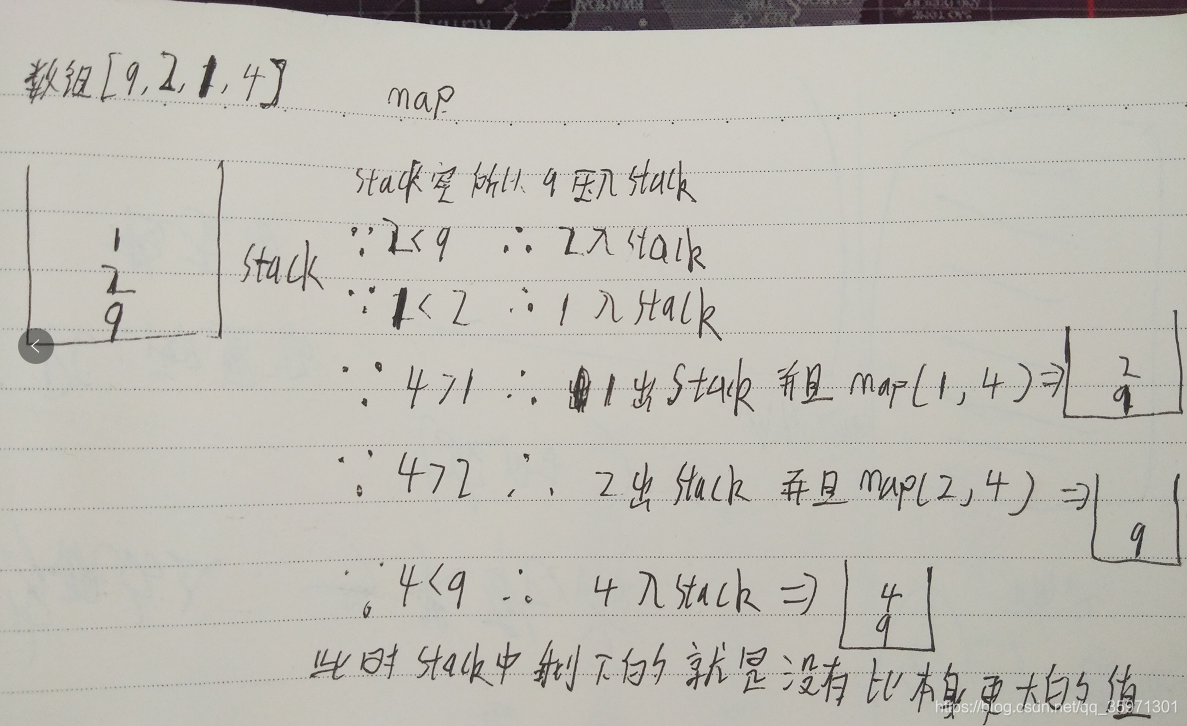 数组[9,2,1,4]
map
1
2
9
stack
stack空 所以 9压入stack
∵2<9 ∴ 2入stack
∵1<2 ∴ 1入stack
∵ 4>1 ∴ 1出stack 并且 map(1,4)⇒
2
9
∵ 4>2 ∴ 2出stack 并且map(2,4)⇒
9
∵ 4<9 ∴ 4入stack ⇒
4
9
此时 stack中剩下的就是没有比本身更大的值
https://blog.csdn.net/qq_35971301